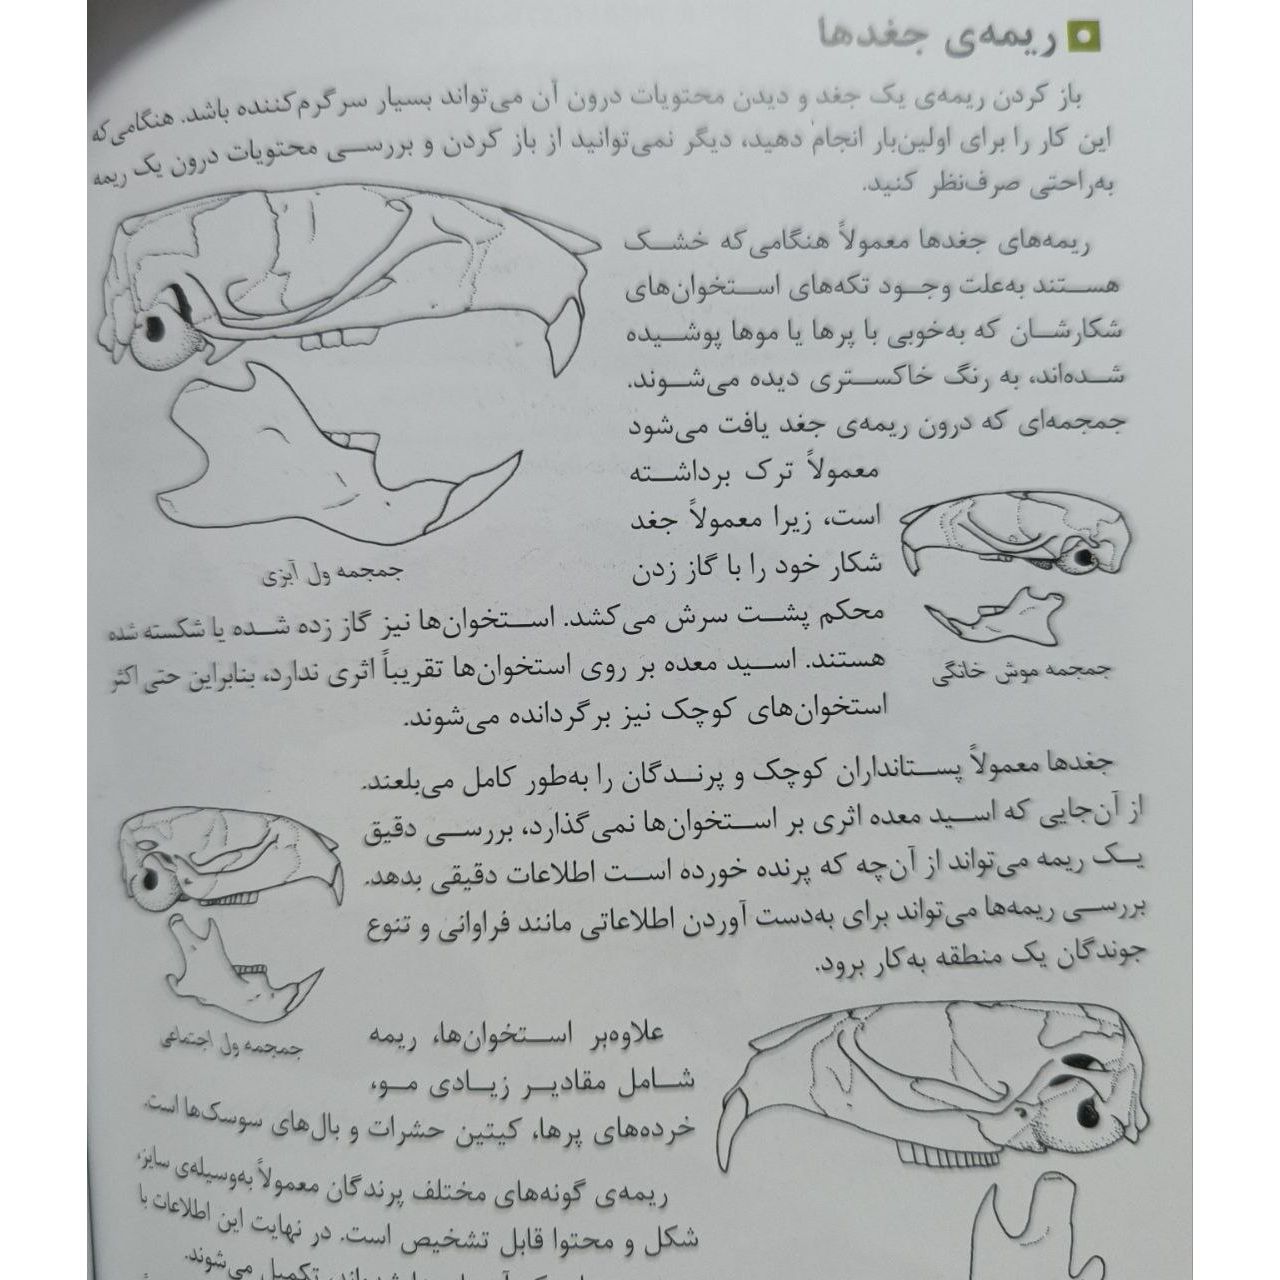 ریمه‌ی جغدها
باز کردن ریمه‌ی یک جغد و دیدن محتویات درون آن می‌تواند بسیار سرگرم‌کننده باشد. هنگامی‌که
این کار را برای اولین‌بار انجام دهید، دیگر نمی‌توانید از باز کردن و بررسی محتویات درون یک ریمه
به‌راحتی صرف‌نظر کنید.
ریمه‌های جغدها معمولاً هنگامی‌که خشک
هستند به‌علت وجود تکه‌های استخوان‌های
شکارشان که به‌خوبی با پرها یا موها پوشیده
شده‌اند، به رنگ خاکستری دیده می‌شوند.
جمجمه‌ای که درون ریمه‌ی جغد یافت می‌شود
معمولاً ترک برداشته
است، زیرا معمولاً جغد
شکار خود را با گاز زدن
محکم پشت سرش می‌کشد. استخوان‌ها نیز گاز زده شده یا شکسته شده
هستند. اسید معده بر روی استخوان‌ها تقریباً اثری ندارد، بنابراین حتی اکثر
استخوان‌های کوچک نیز برگردانده می‌شوند.
جمجمه ول آبزی
جمجمه موش خانگی
جغدها معمولاً پستانداران کوچک و پرندگان را به‌طور کامل می‌بلعند.
از آن‌جایی که اسید معده اثری بر استخوان‌ها نمی‌گذارد، بررسی دقیق
یک ریمه می‌تواند از آن‌چه که پرنده خورده است اطلاعات دقیقی بدهد.
بررسی ریمه‌ها می‌تواند برای به‌دست آوردن اطلاعاتی مانند فراوانی و تنوع
جوندگان یک منطقه به‌کار برود.
جمجمه ول اجتماعی
علاوه‌بر استخوان‌ها، ریمه
شامل مقادیر زیادی مو،
خرده‌های پرها، کیتین حشرات و بال‌های سوسک‌ها است.
ریمه‌ی گونه‌های مختلف پرندگان معمولاً به‌وسیله‌ی سایز،
شکل و محتوا قابل تشخیص است. در نهایت این اطلاعات با
تکمیل می‌شوند.